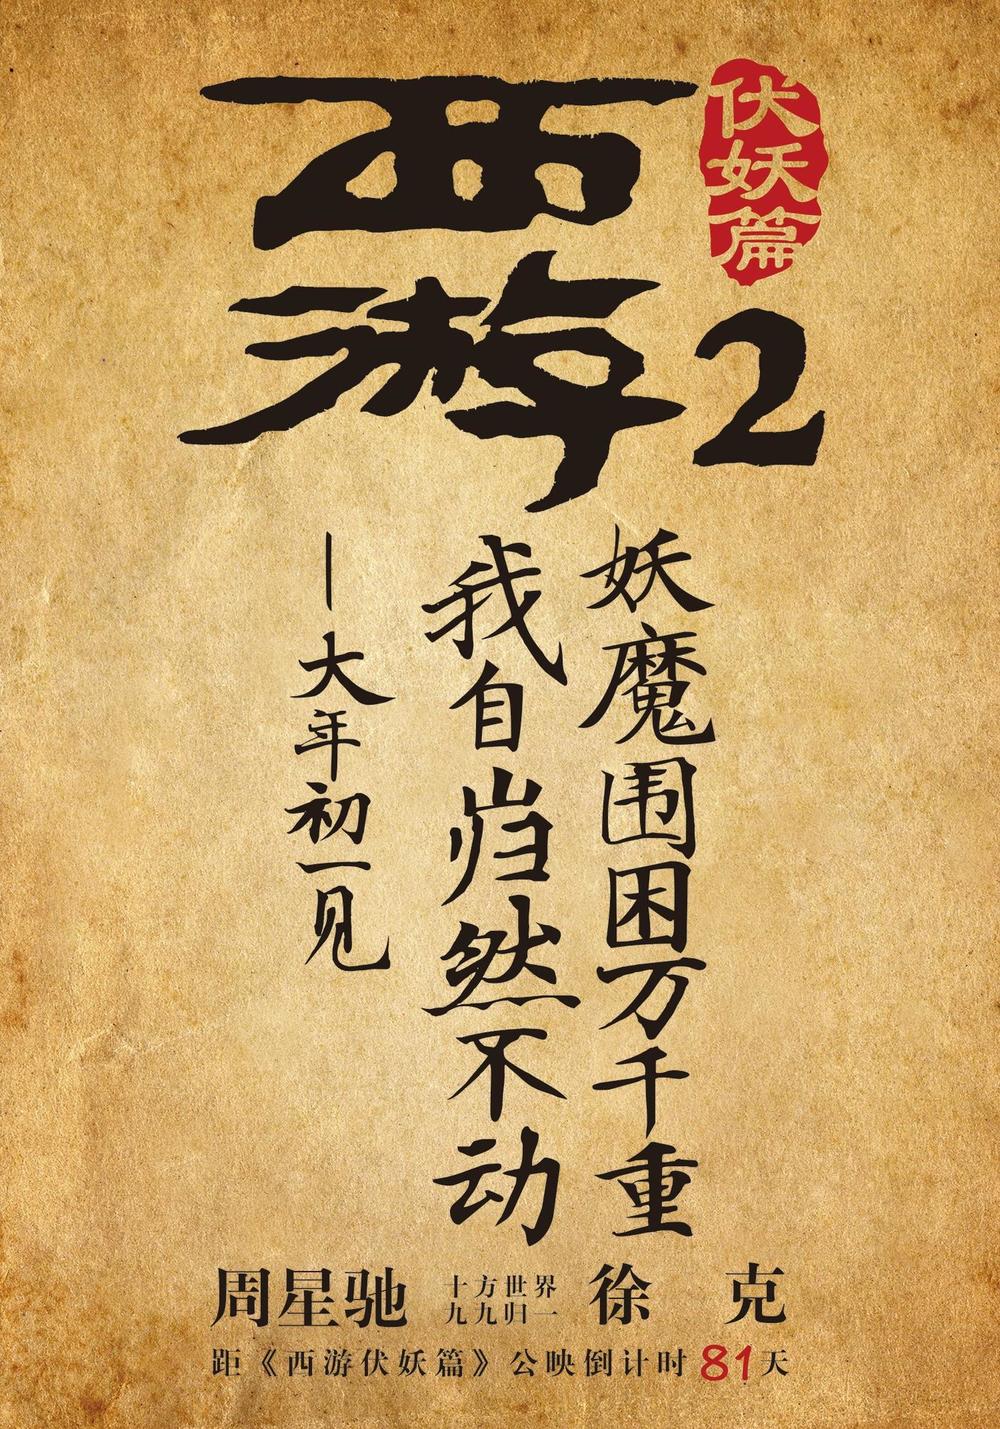 西游2
伏妖篇
妖魔围困万千重
我自岿然不动
—大年初一见
周星驰
十方世界
九九归一
徐克
距《西游伏妖篇》公映倒计时81天